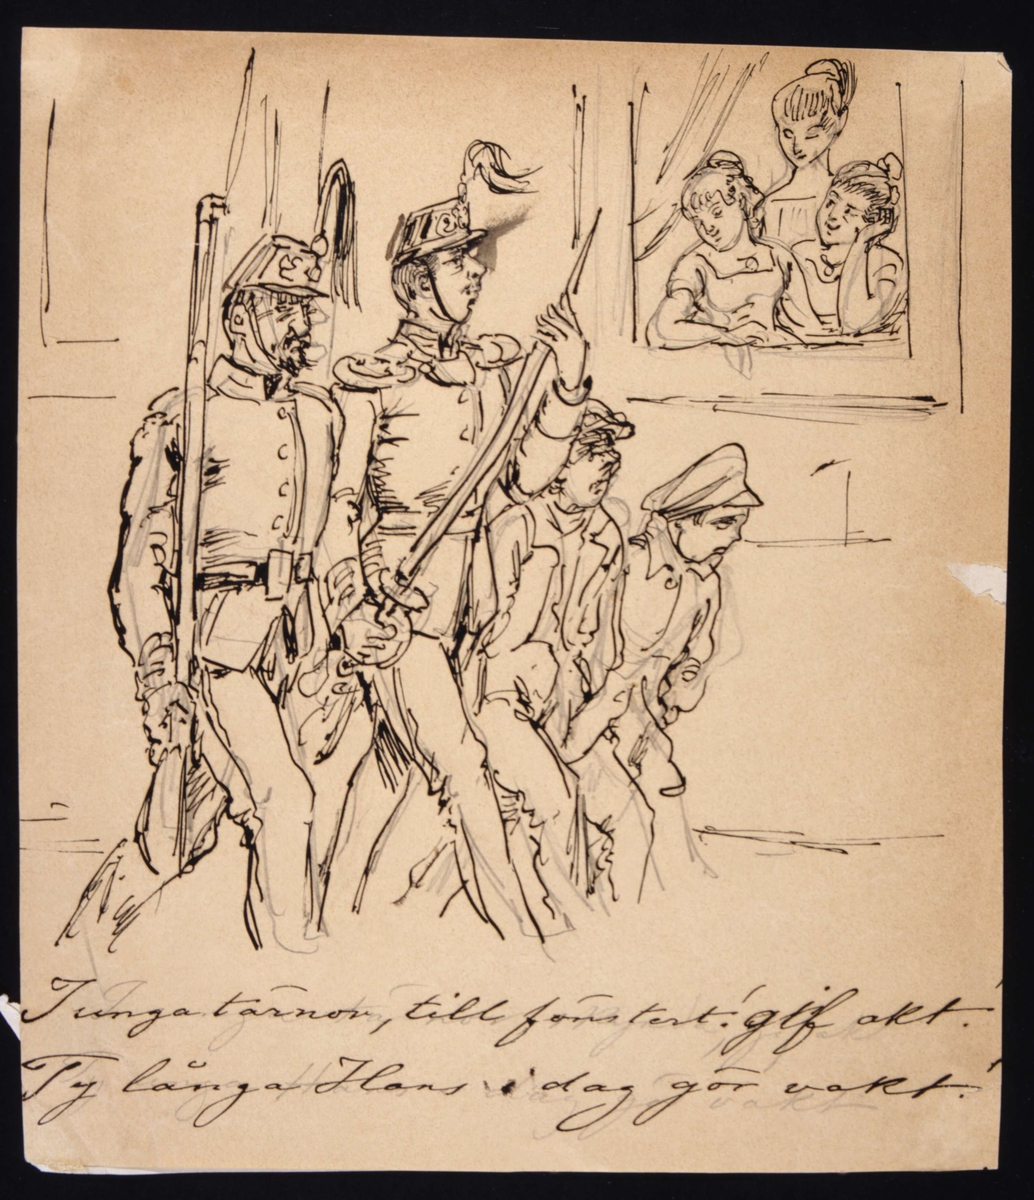 I unga tärnor, till fönstert! gif akt!
Ty långa Hans i dag gör vakt!